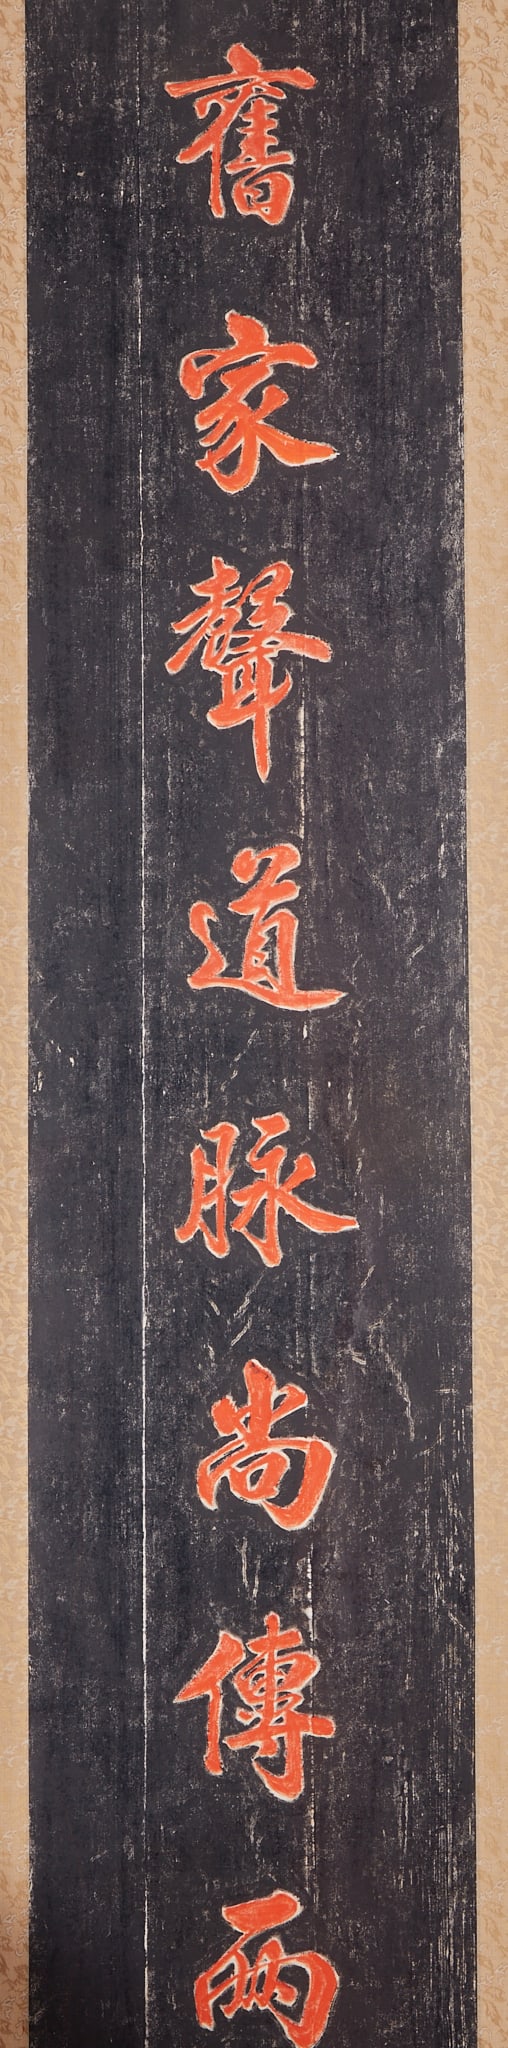 舊家聲道脉尚傳兩